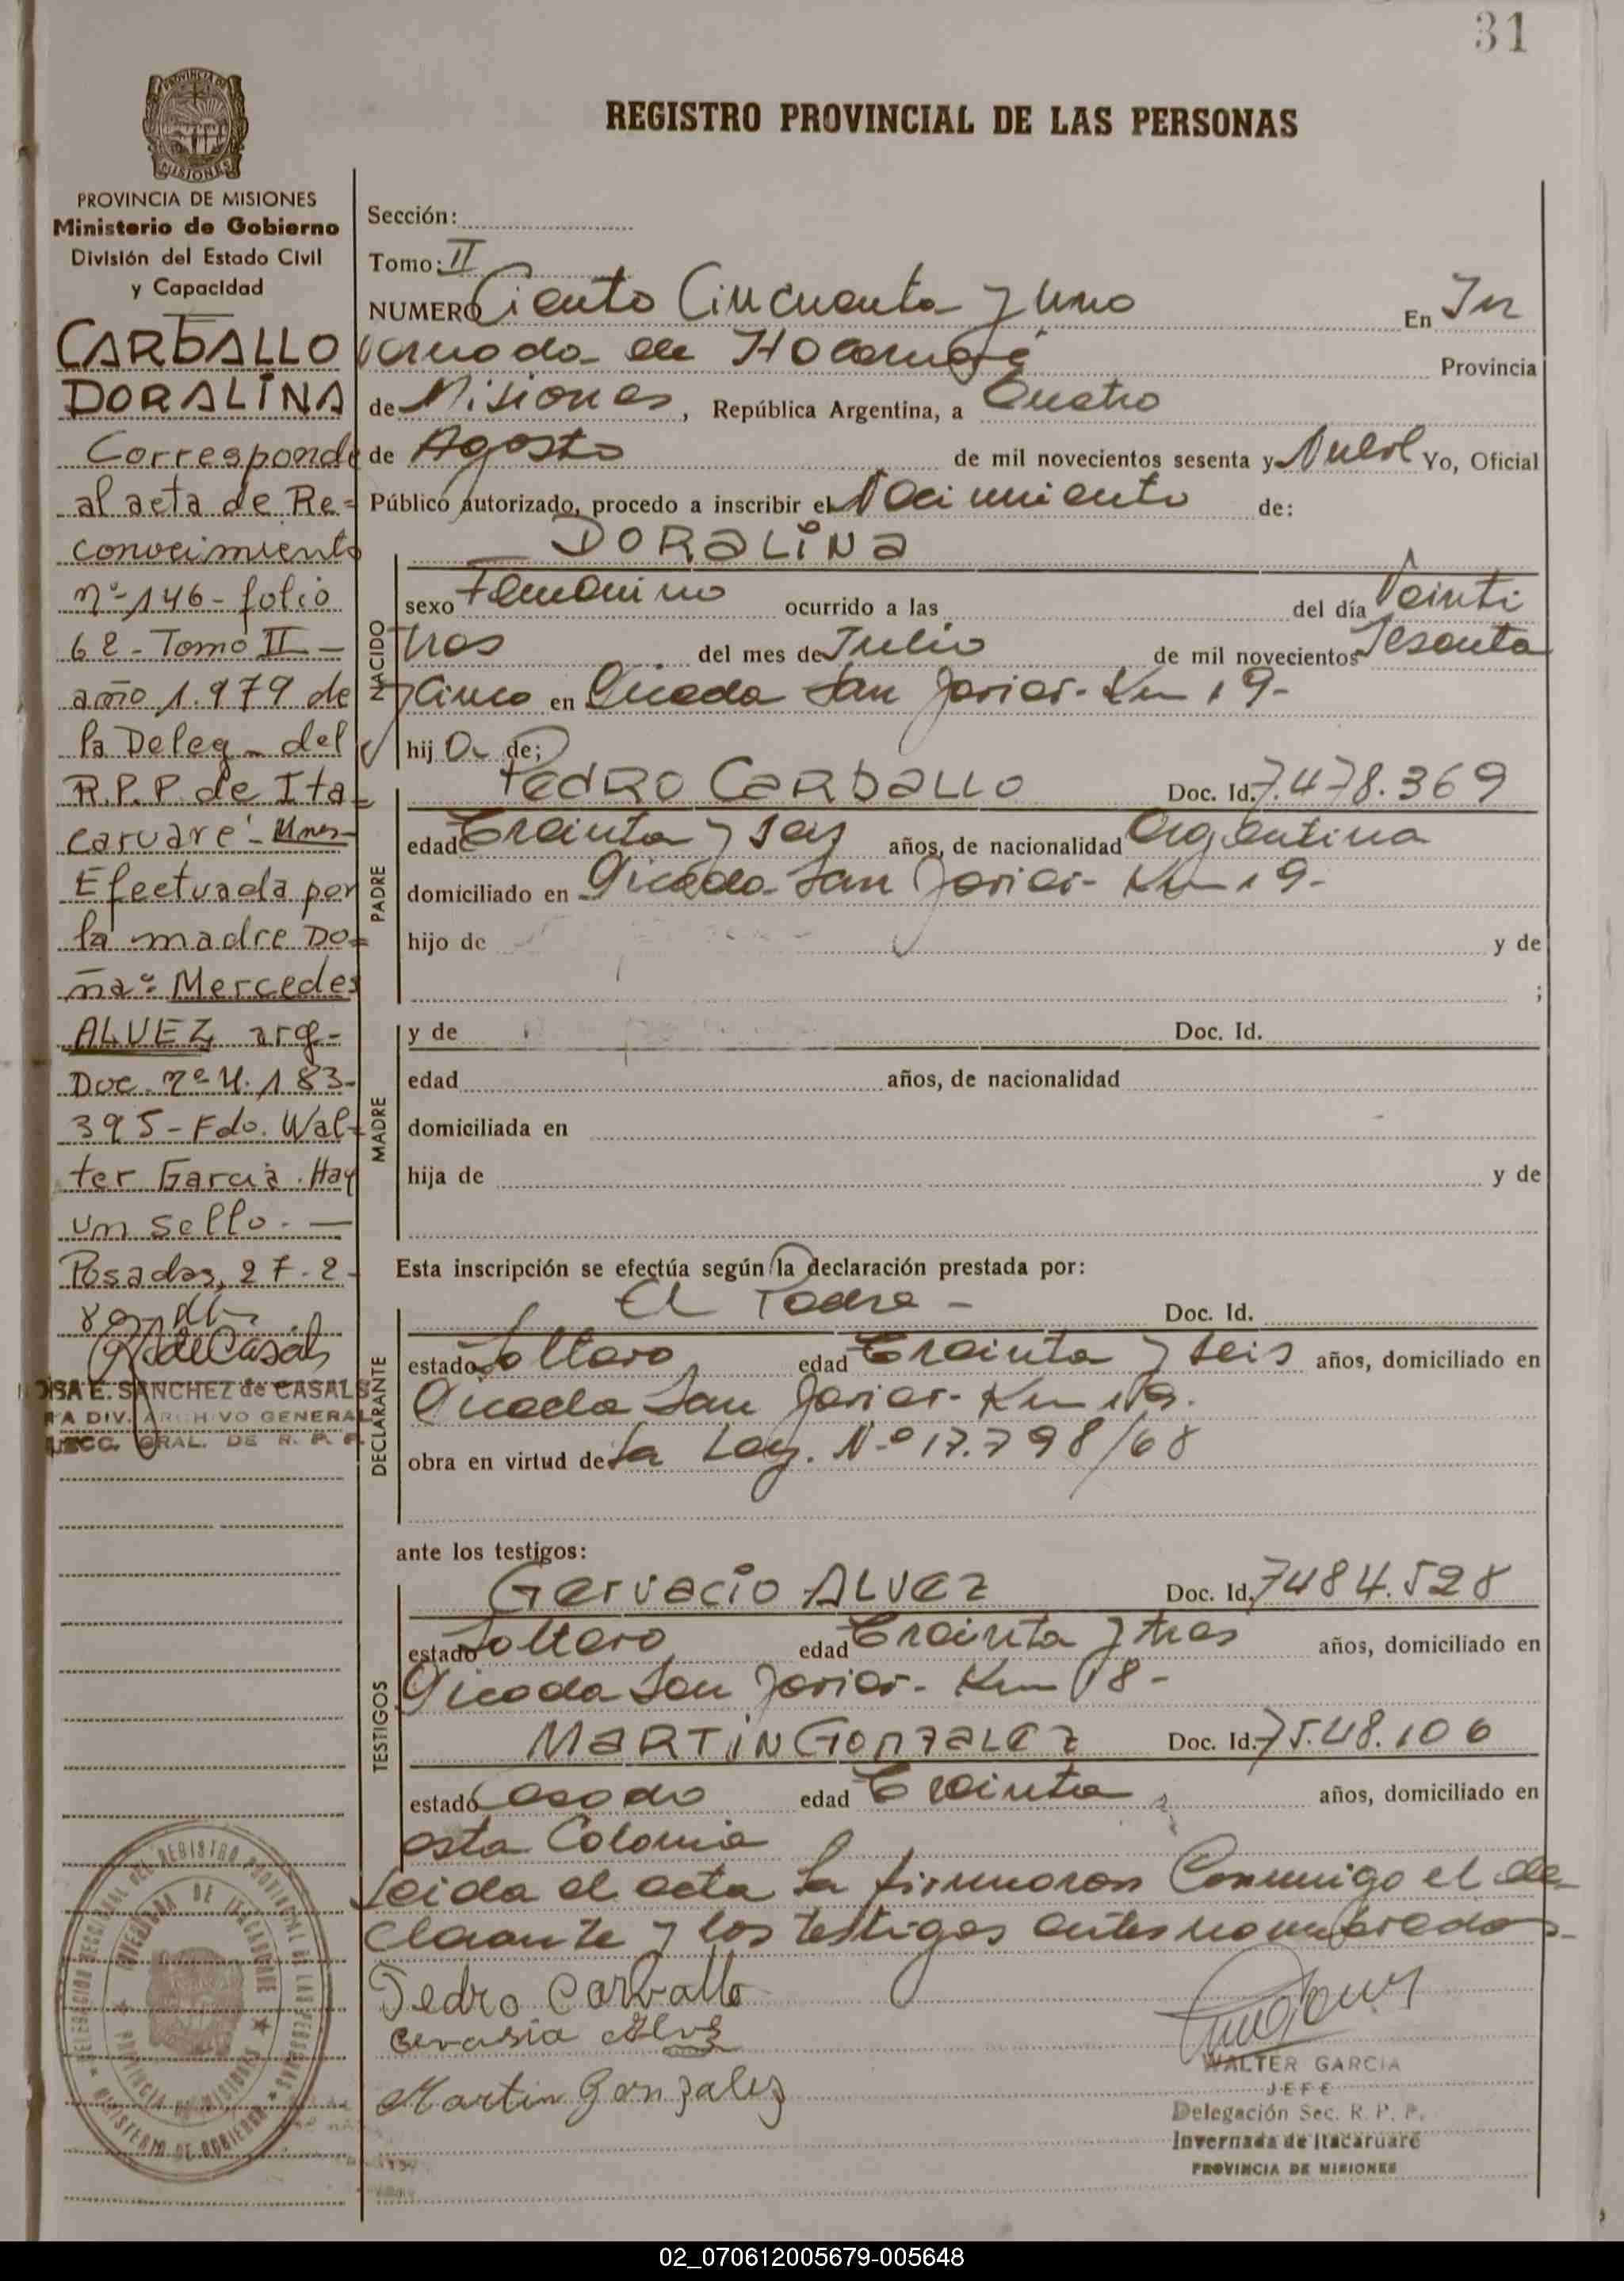 31
PROVINCIA DE MISIONES
REGISTRO PROVINCIAL DE LAS PERSONAS
PROVINCIA DE MISIONES
Ministerio de Gobierno
División del Estado Civil
y Capacidad
CARBALLO
DORALINA
Corresponde
al acta de Re=
conocimiento
nº 146 - folio
62 - Tomo II -
año 1.979 de
la Deleg - del
R.P.P. de Ita=
caruare' - Mnes-
Efectuada por
la madre Do=
ña: Mercedes
ALVEZ arg-
Doc. nº 4.183-
395 - Fdo. Wal-
ter Garcia. Hay
un sello. -
Posadas, 27-2-
SANCHEZ de CASALS
DIV. ARCHIVO GENERAL
GRAL. DE R. P. P.
Sección:
Tomo: II
NUMERO Ciento Cincuenta y uno En In
vernada de Itacaruaré Provincia
de Misiones, República Argentina, a Cuatro
de Agosto de mil novecientos sesenta y Nueve Yo, Oficial
Público autorizado, procedo a inscribir el Nacimiento de:
DORALINA
NACIDO
sexo Femenino ocurrido a las del día Veinti
tres del mes de Julio de mil novecientos Sesenta
y Cinco en Picada San Javier - Km 19-
hij a de;
PADRE
PEDRO CARBALLO Doc. Id. 7.478.369
edad Treinta y seis años, de nacionalidad Argentina
domiciliado en Picada San Javier - Km 19-
hijo de y de
;
MADRE
y de Doc. Id.
edad años, de nacionalidad
domiciliada en
hija de y de
Esta inscripción se efectúa según la declaración prestada por:
DECLARANTE
El Padre - Doc. Id.
estado Soltero edad Treinta y seis años, domiciliado en
Picada San Javier - Km 19.
obra en virtud de La Ley. Nº 17.798/68
ante los testigos:
TESTIGOS
Gervacio ALVEZ Doc. Id. 7484.528
estado Soltero edad Treinta y tres años, domiciliado en
Picada San Javier - Km 18-
MARTIN GONZALEZ Doc. Id. 7.548.106
estado Casado edad Treinta años, domiciliado en
esta Colonia
Leida el acta la firmaron Conmigo el de-
clarante y los testigos antes nombrados.-
Pedro Carballo
Martin Gonzalez
WALTER GARCIA
JEFE
Delegación Sec. R. P. P.
Invernada de Itacaruaré
PROVINCIA DE MISIONES
02_070612005679-005648